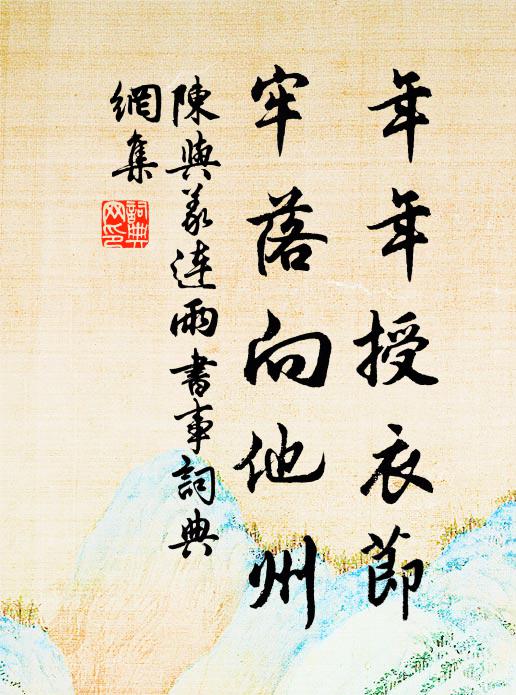 年年授衣節
牢落向他州
陳與義連雨書事詞典
網集
詞典
网印